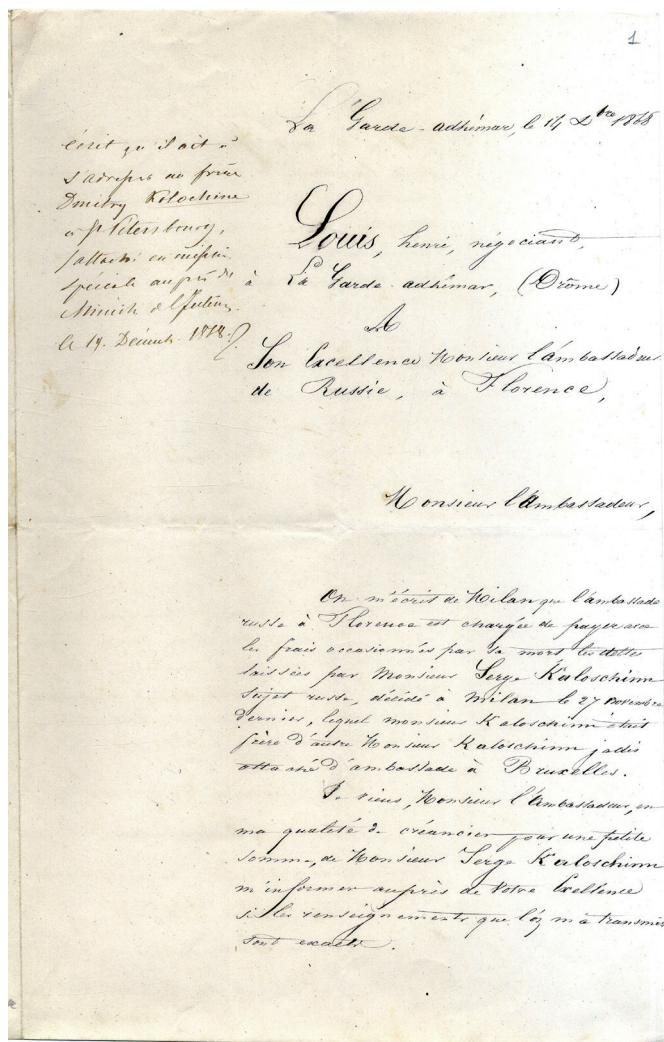 1
La Garde-adhémar, le 14 Xbre 1868
écrit qu'il ait à
s'adresser au frère
Dmitry Kolochine
à St Pétersbourg,
attaché en mission
spéciale auprès du
Ministre de
le 19. Décemb. 1868.
Louis, henri, négociant,
à La Garde-adhémar, (Drôme)
A
Son Excellence Monsieur l'ambassadeur
de Russie, à Florence,
Monsieur l'Ambassadeur,
On m'écrit de Milan que l'ambassade
russe à Florence est chargée de payer avec
les frais occasionnés par sa mort les dettes
laissées par Monsieur Serge Kaloschinn
sujet russe, décédé à Milan le 27 novembre
dernier, lequel monsieur Kaloschinn était
frère d'autre Monsieur Kaloschinn jadis
attaché d'ambassade à Bruxelles.
Je viens, Monsieur l'Ambassadeur, en
ma qualité de créancier pour une petite
somme, de Monsieur Serge Kaloschinn
m'informer auprès de Votre Excellence
si les renseignements que l'on m'a transmis
sont exacts.